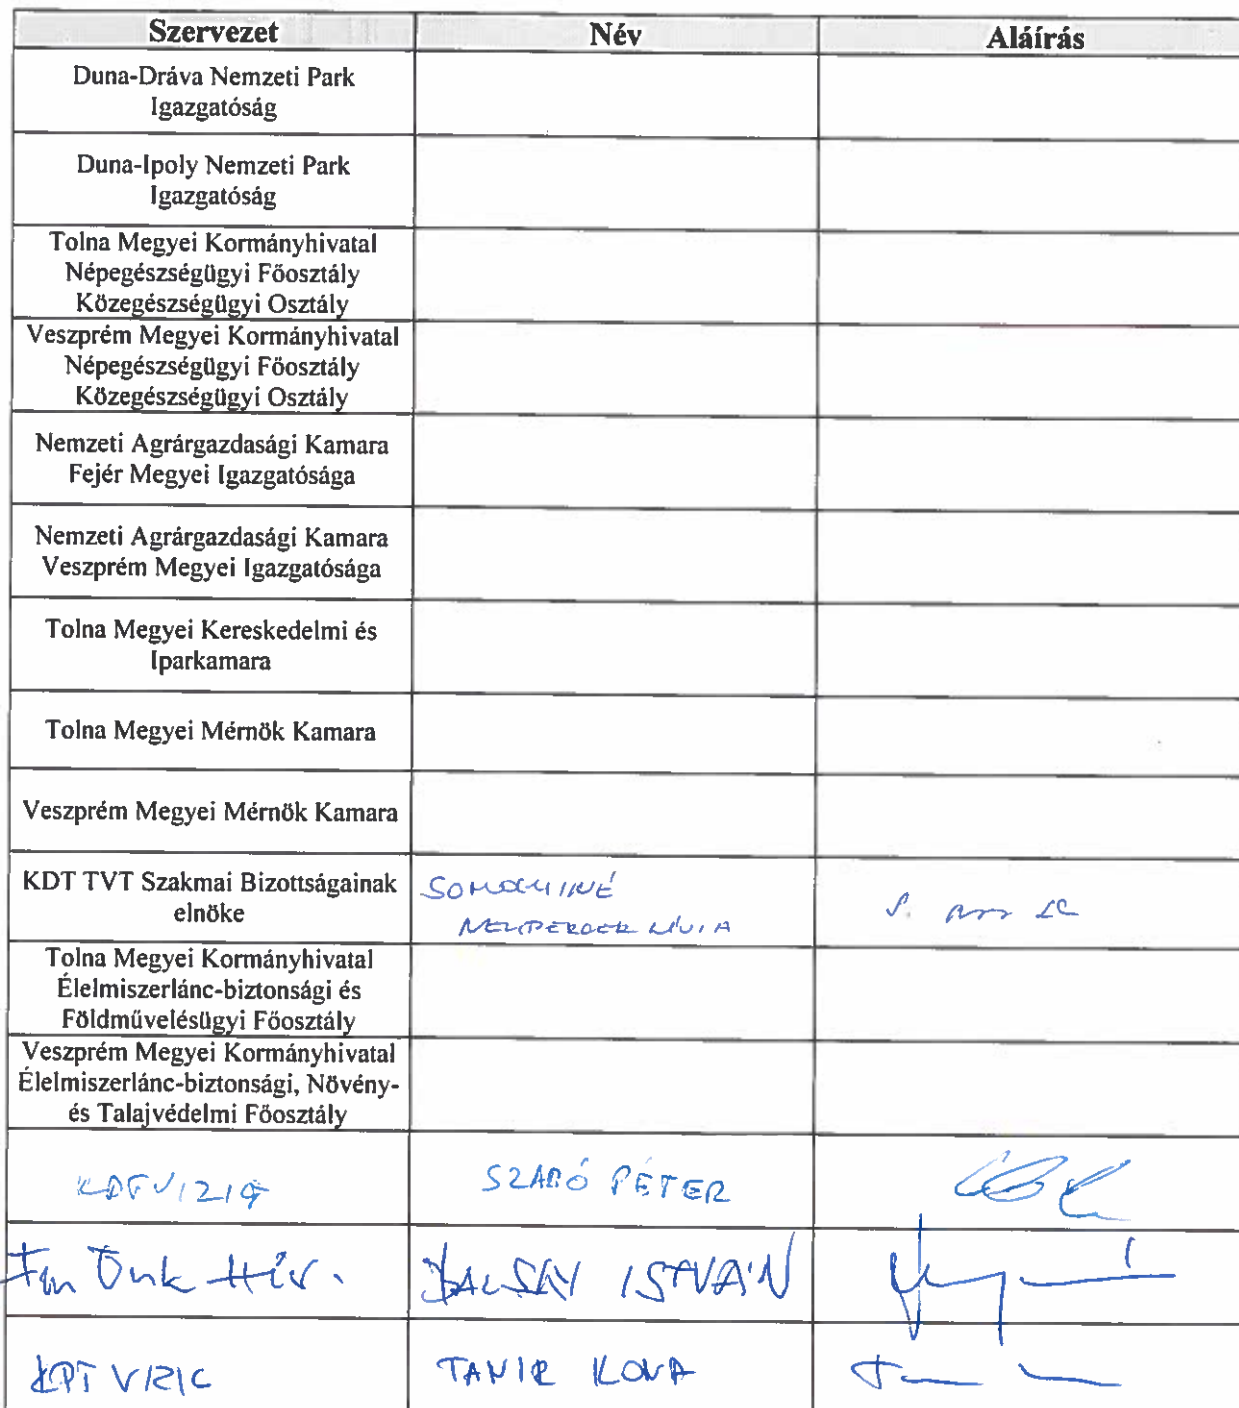 Szervezet Név Aláírás
Duna-Dráva Nemzeti Park
Igazgatóság
Duna-Ipoly Nemzeti Park
Igazgatóság
Tolna Megyei Kormányhivatal
Népegészségügyi Főosztály
Közegészségügyi Osztály
Veszprém Megyei Kormányhivatal
Népegészségügyi Főosztály
Közegészségügyi Osztály
Nemzeti Agrárgazdasági Kamara
Fejér Megyei Igazgatósága
Nemzeti Agrárgazdasági Kamara
Veszprém Megyei Igazgatósága
Tolna Megyei Kereskedelmi és
Iparkamara
Tolna Megyei Mérnök Kamara
Veszprém Megyei Mérnök Kamara
KDT TVT Szakmai Bizottságainak
elnöke
LÍVIA
Tolna Megyei Kormányhivatal
Élelmiszerlánc-biztonsági és
Földművelésügyi Főosztály
Veszprém Megyei Kormányhivatal
Élelmiszerlánc-biztonsági, Növény-
és Talajvédelmi Főosztály
SZABÓ PÉTER
ISTVÁN